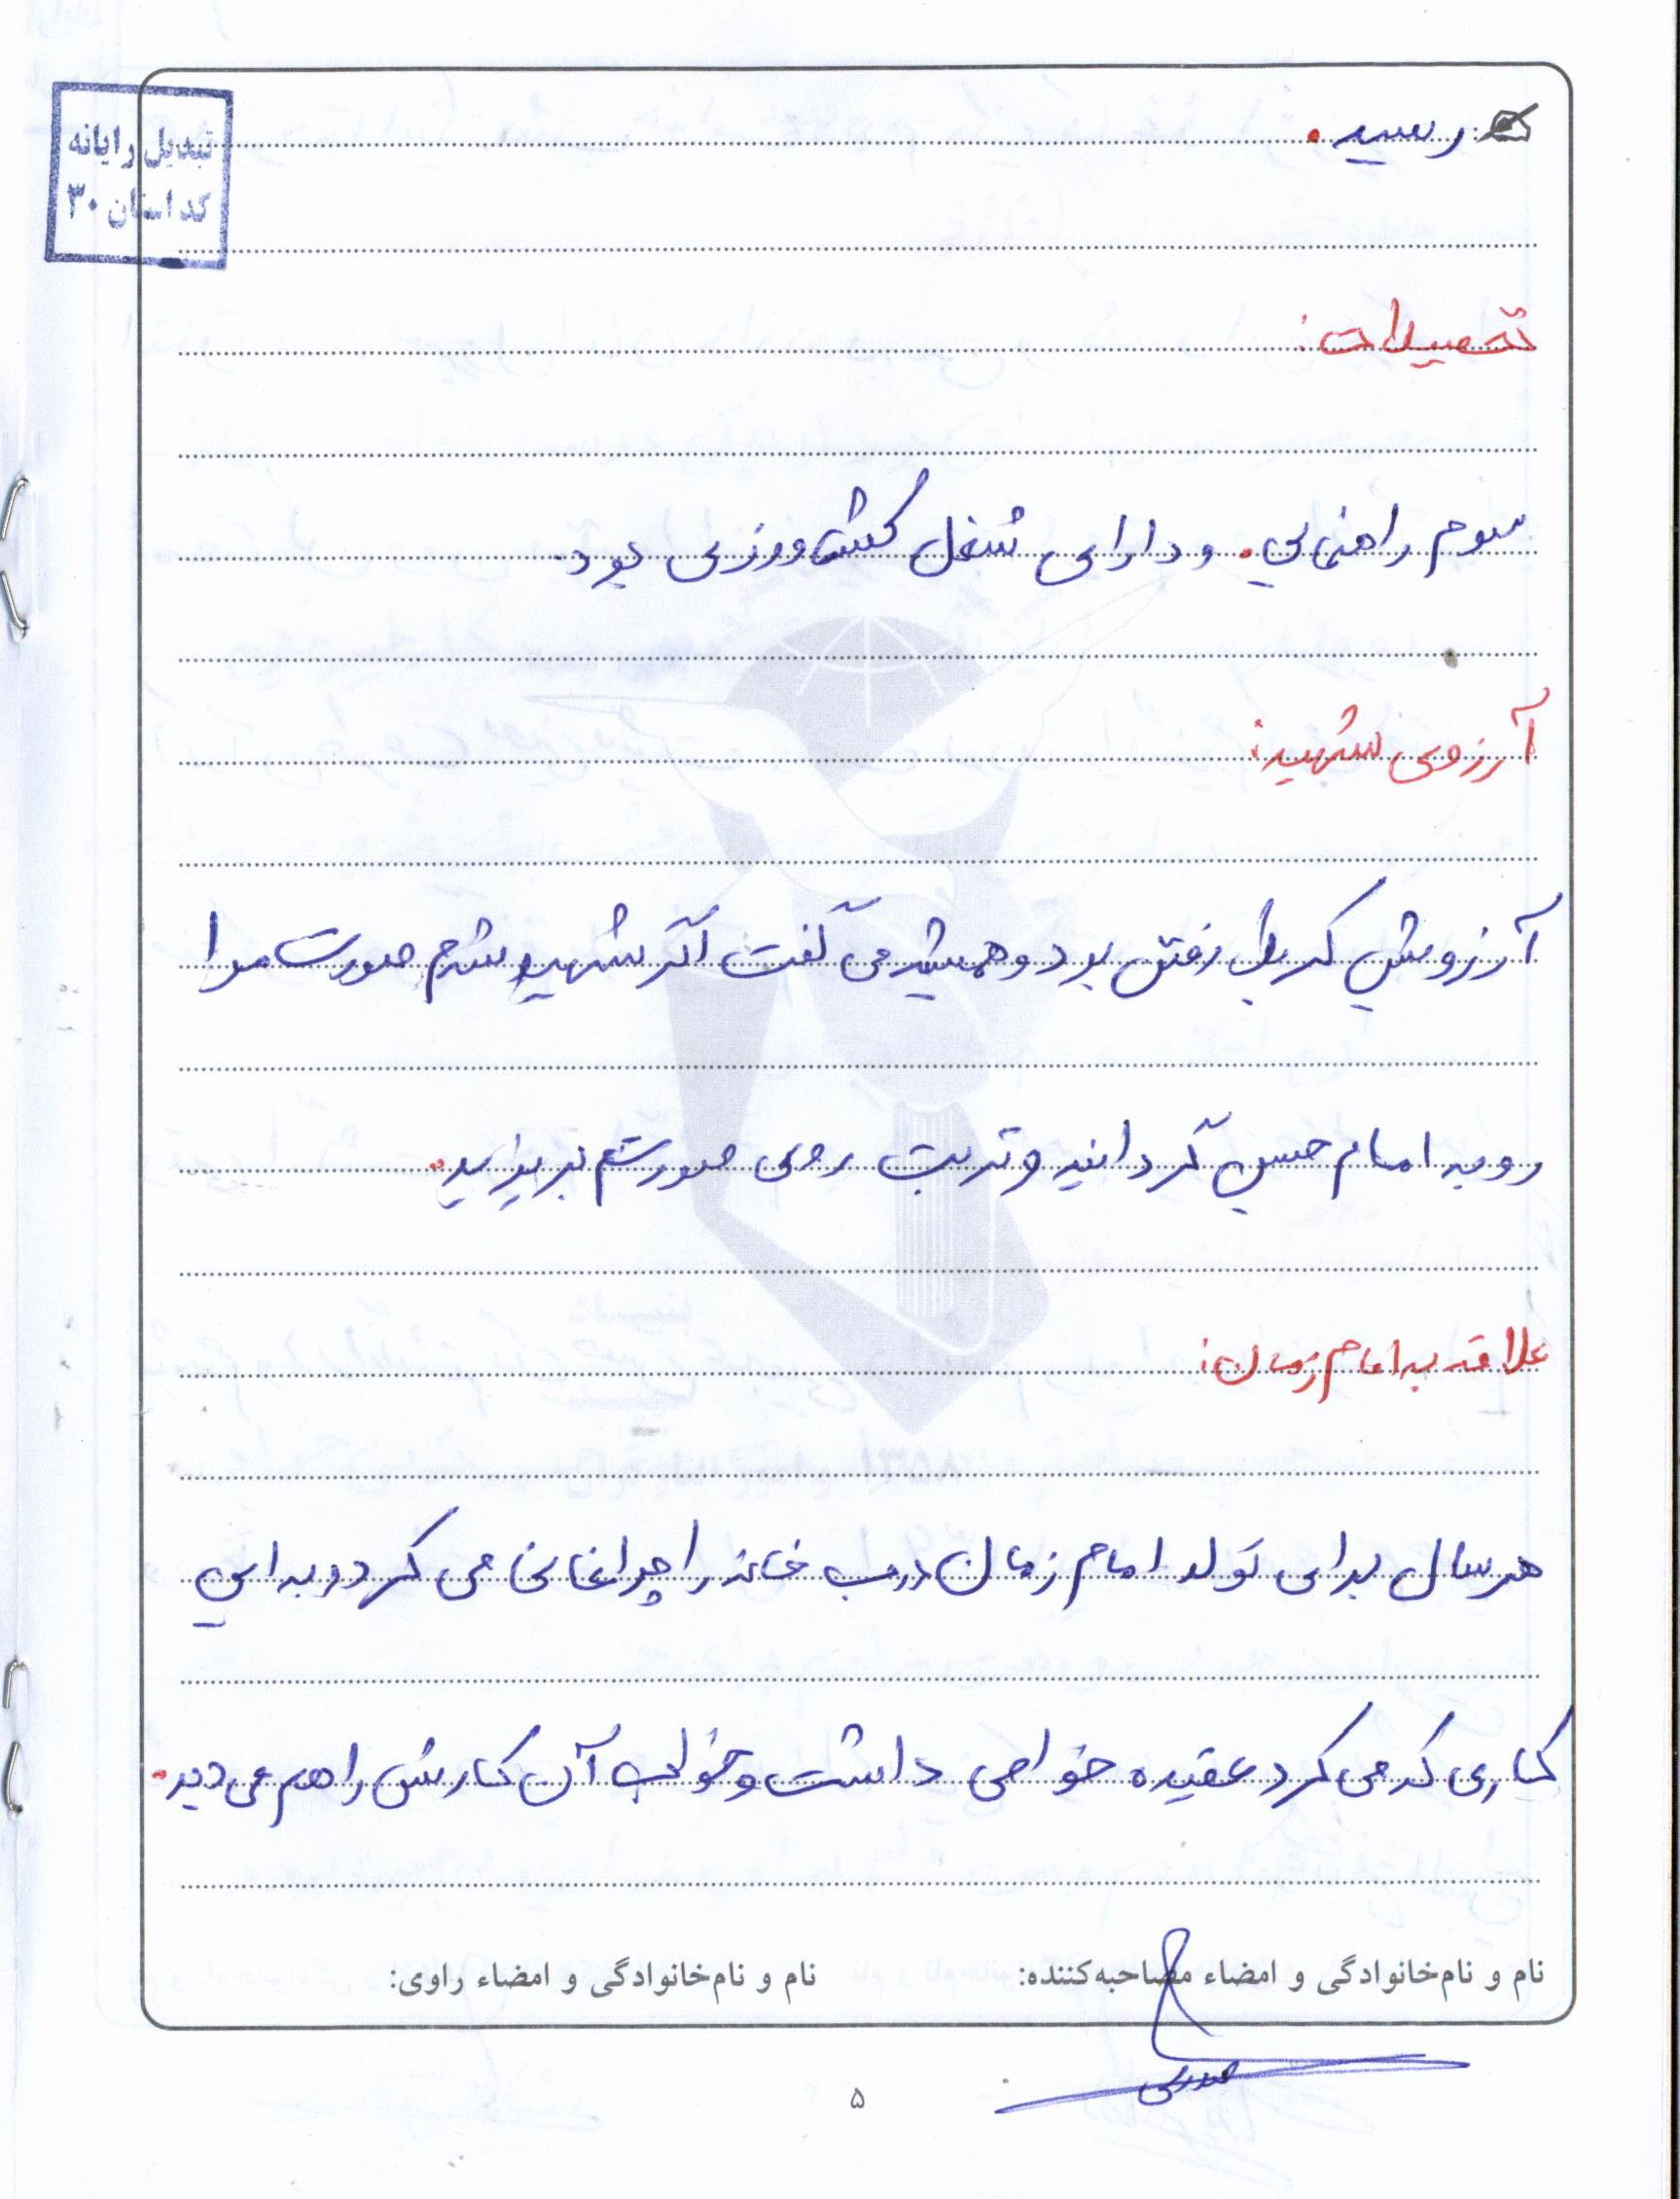 رسید.
تبدیل رایانه
کد استان ۳۰
تحصیلات:
سوم راهنمایی. و دارای شغل کشاورزی بود.
آرزوی شهید:
آرزویش کربلا رفتن بود و همیشه می گفت اگر شهید شدم صورت مرا
رو به امام حسین گردانید و تربت روی صورتم بریزید.
علاقه به امام زمان:
هر سال برای تولد امام زمان درب خانه را چراغانی می کرد و به این
کاری که می کرد عقیده خواصی داشت و خواب آن کارش را هم می دید.
نام و نام‌خانوادگی و امضاء مصاحبه‌کننده:
نام و نام‌خانوادگی و امضاء راوی:
۵